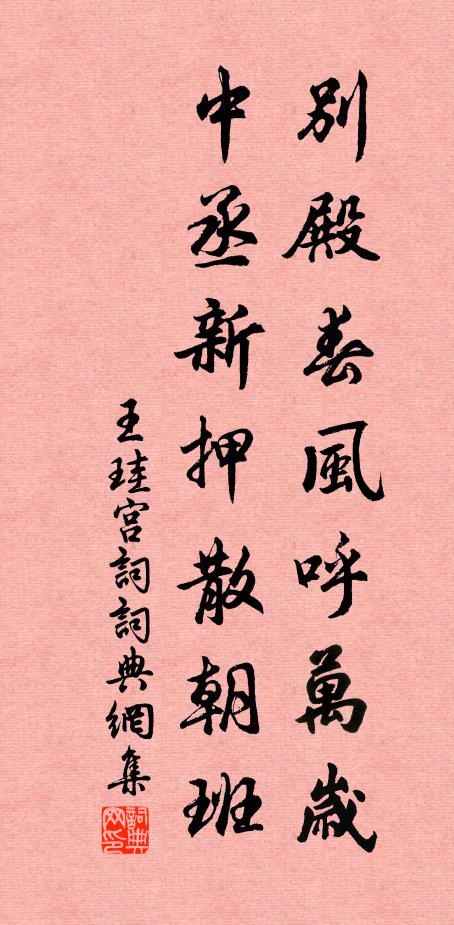 別殿春風呼萬歲
中丞新押散朝班
王珪宮詞詞典網集
詞典网印